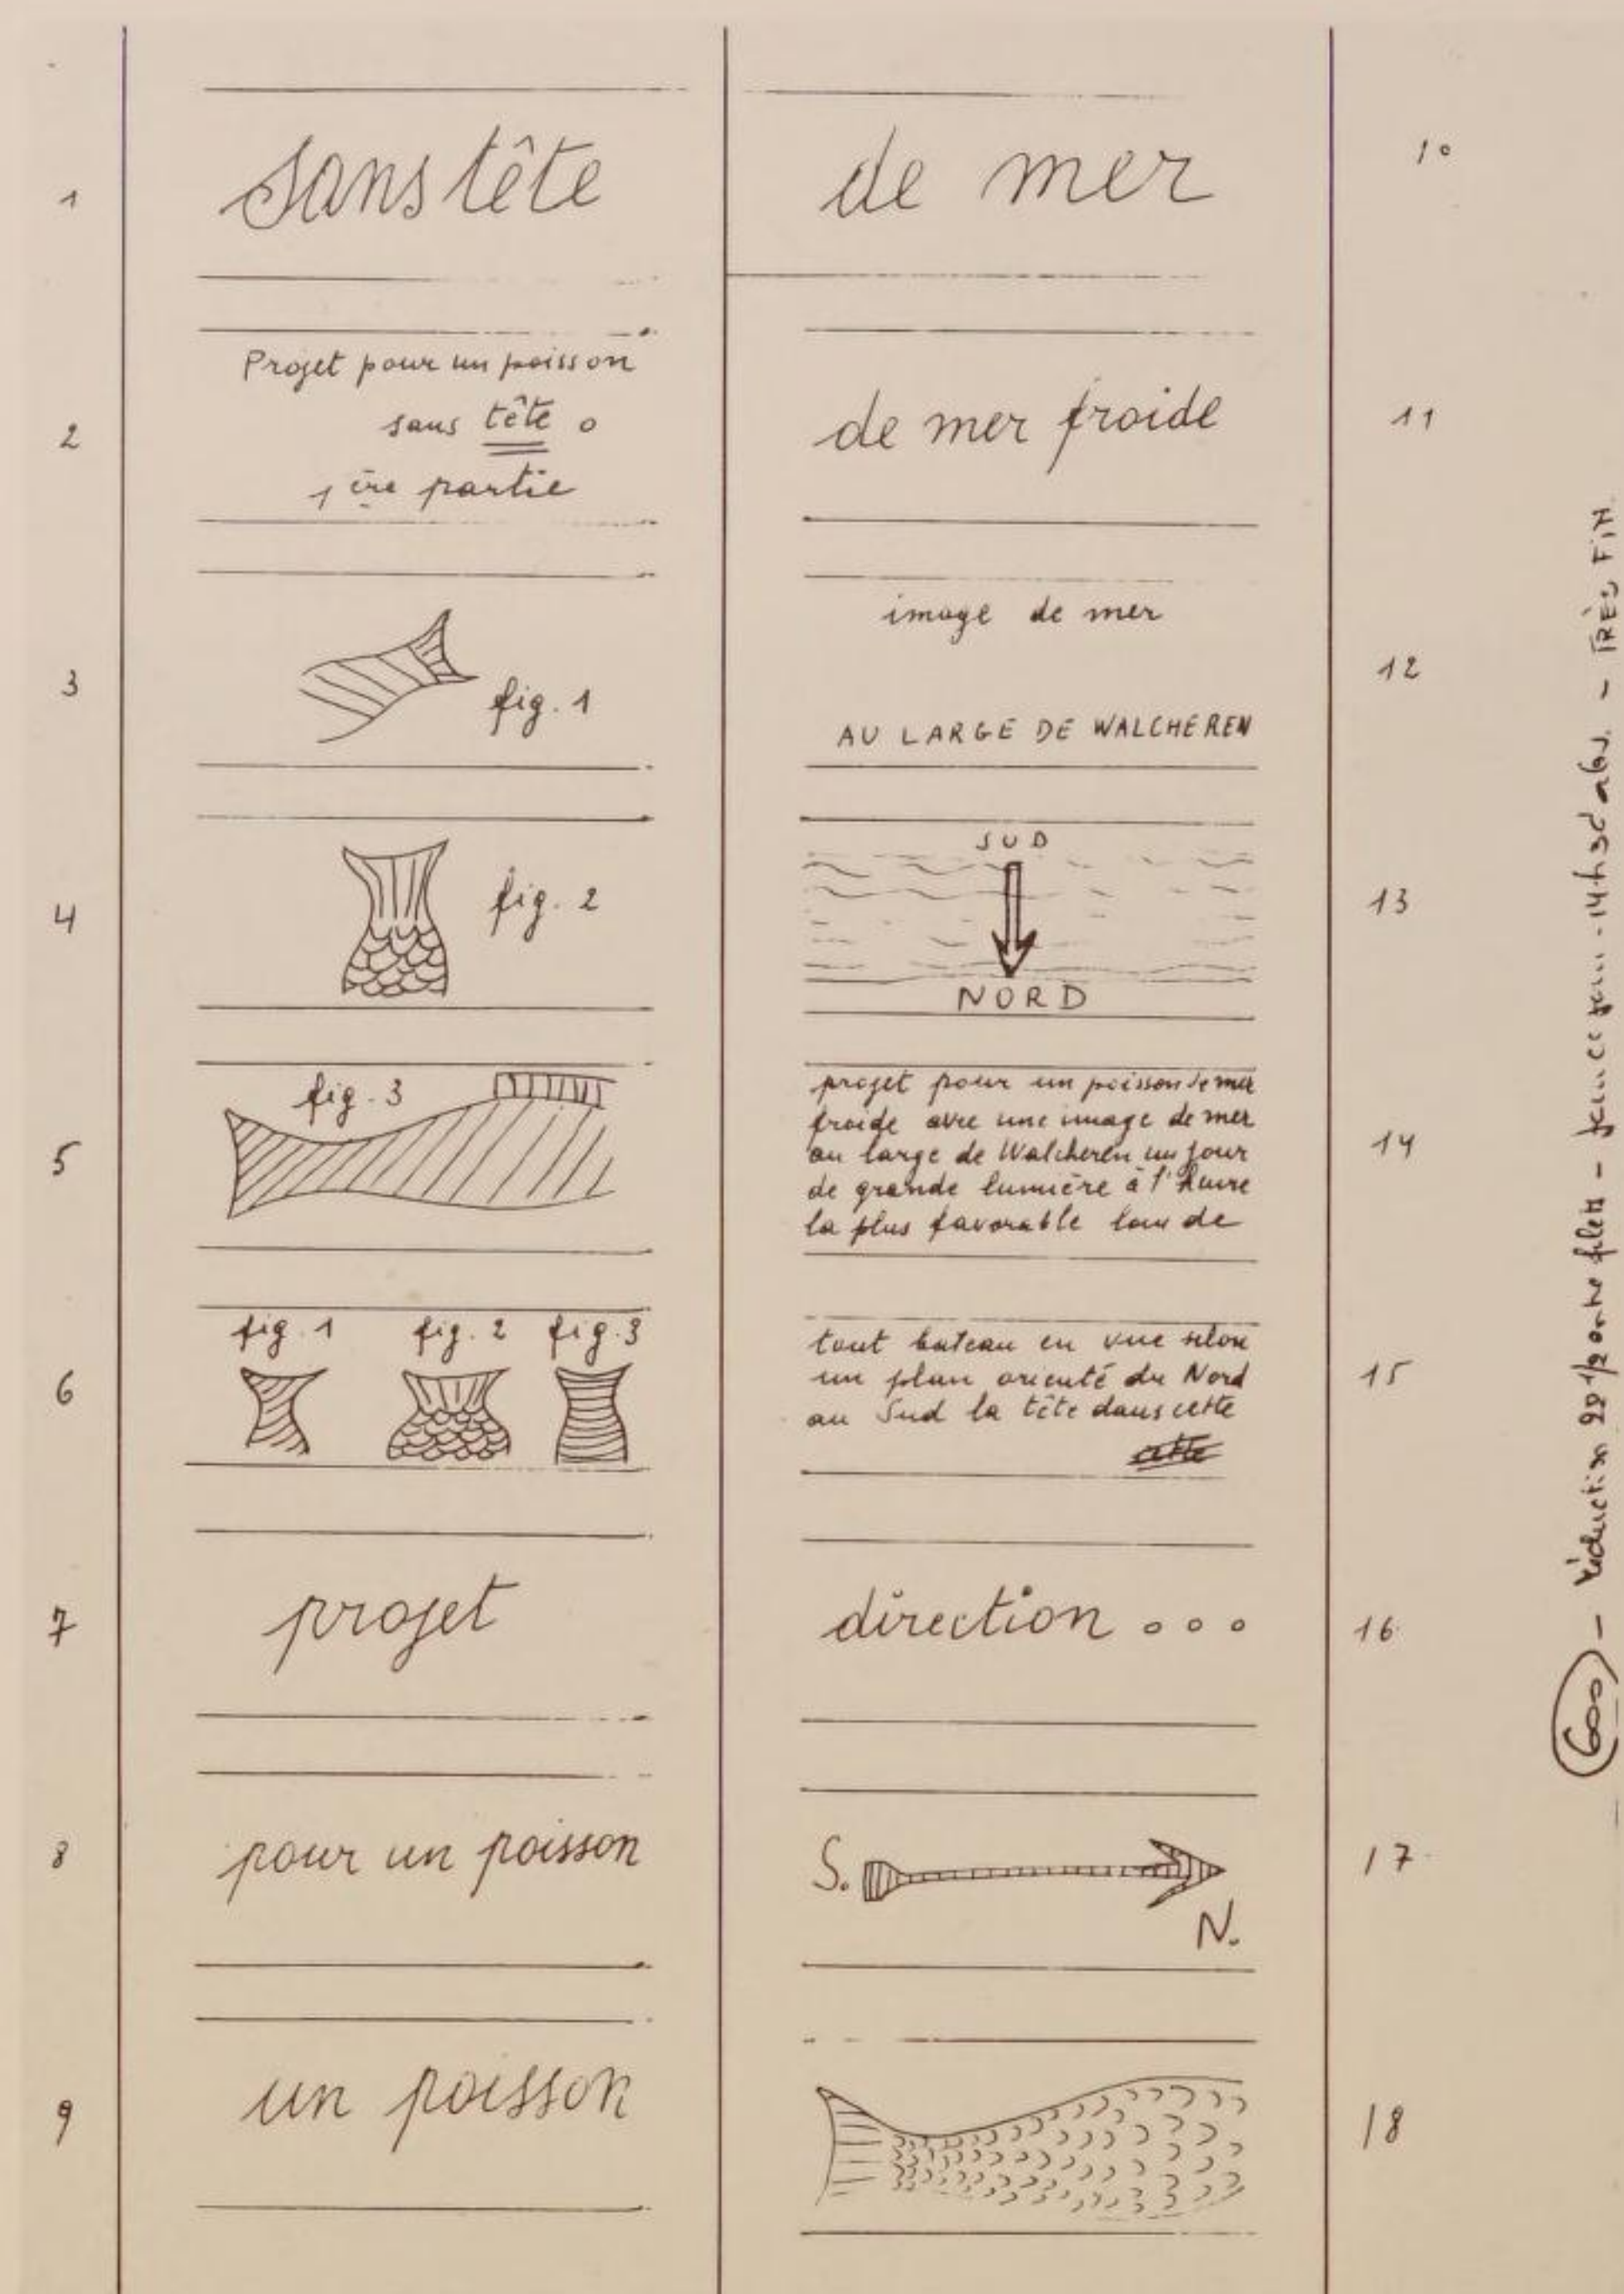 1
sans tête
2
Projet pour un poisson
sans tête o
1ère partie
3
fig. 1
4
fig. 2
5
fig. 3
6
fig. 1 fig. 2 fig. 3
7
projet
8
pour un poisson
9
un poisson
de mer
10
de mer froide
11
image de mer
AU LARGE DE WALCHEREN
12
SUD
NORD
13
projet pour un poisson de mer
froide avec une image de mer
au large de Walcheren un jour
de grande lumière à l'heure
la plus favorable loin de
14
tout bateau en vue selon
un plan orienté du Nord
au Sud la tête dans cette
cette
15
direction ...
16
S.
N.
17
18
600 - réduction 22 1/2 entre filets - - 14h30 - TRÈS FIN